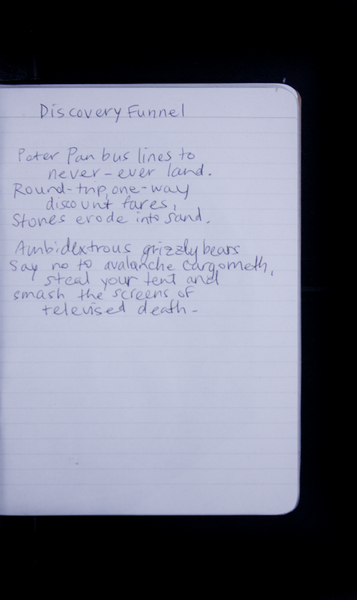 Discovery Funnel
Peter Pan bus lines to
never-ever land.
Round-trip, one-way
discount fares,
Stones erode into sand.
Ambidextrous grizzly bears
Say no to avalanche
steal your tent and
smash the screens of
televised death-